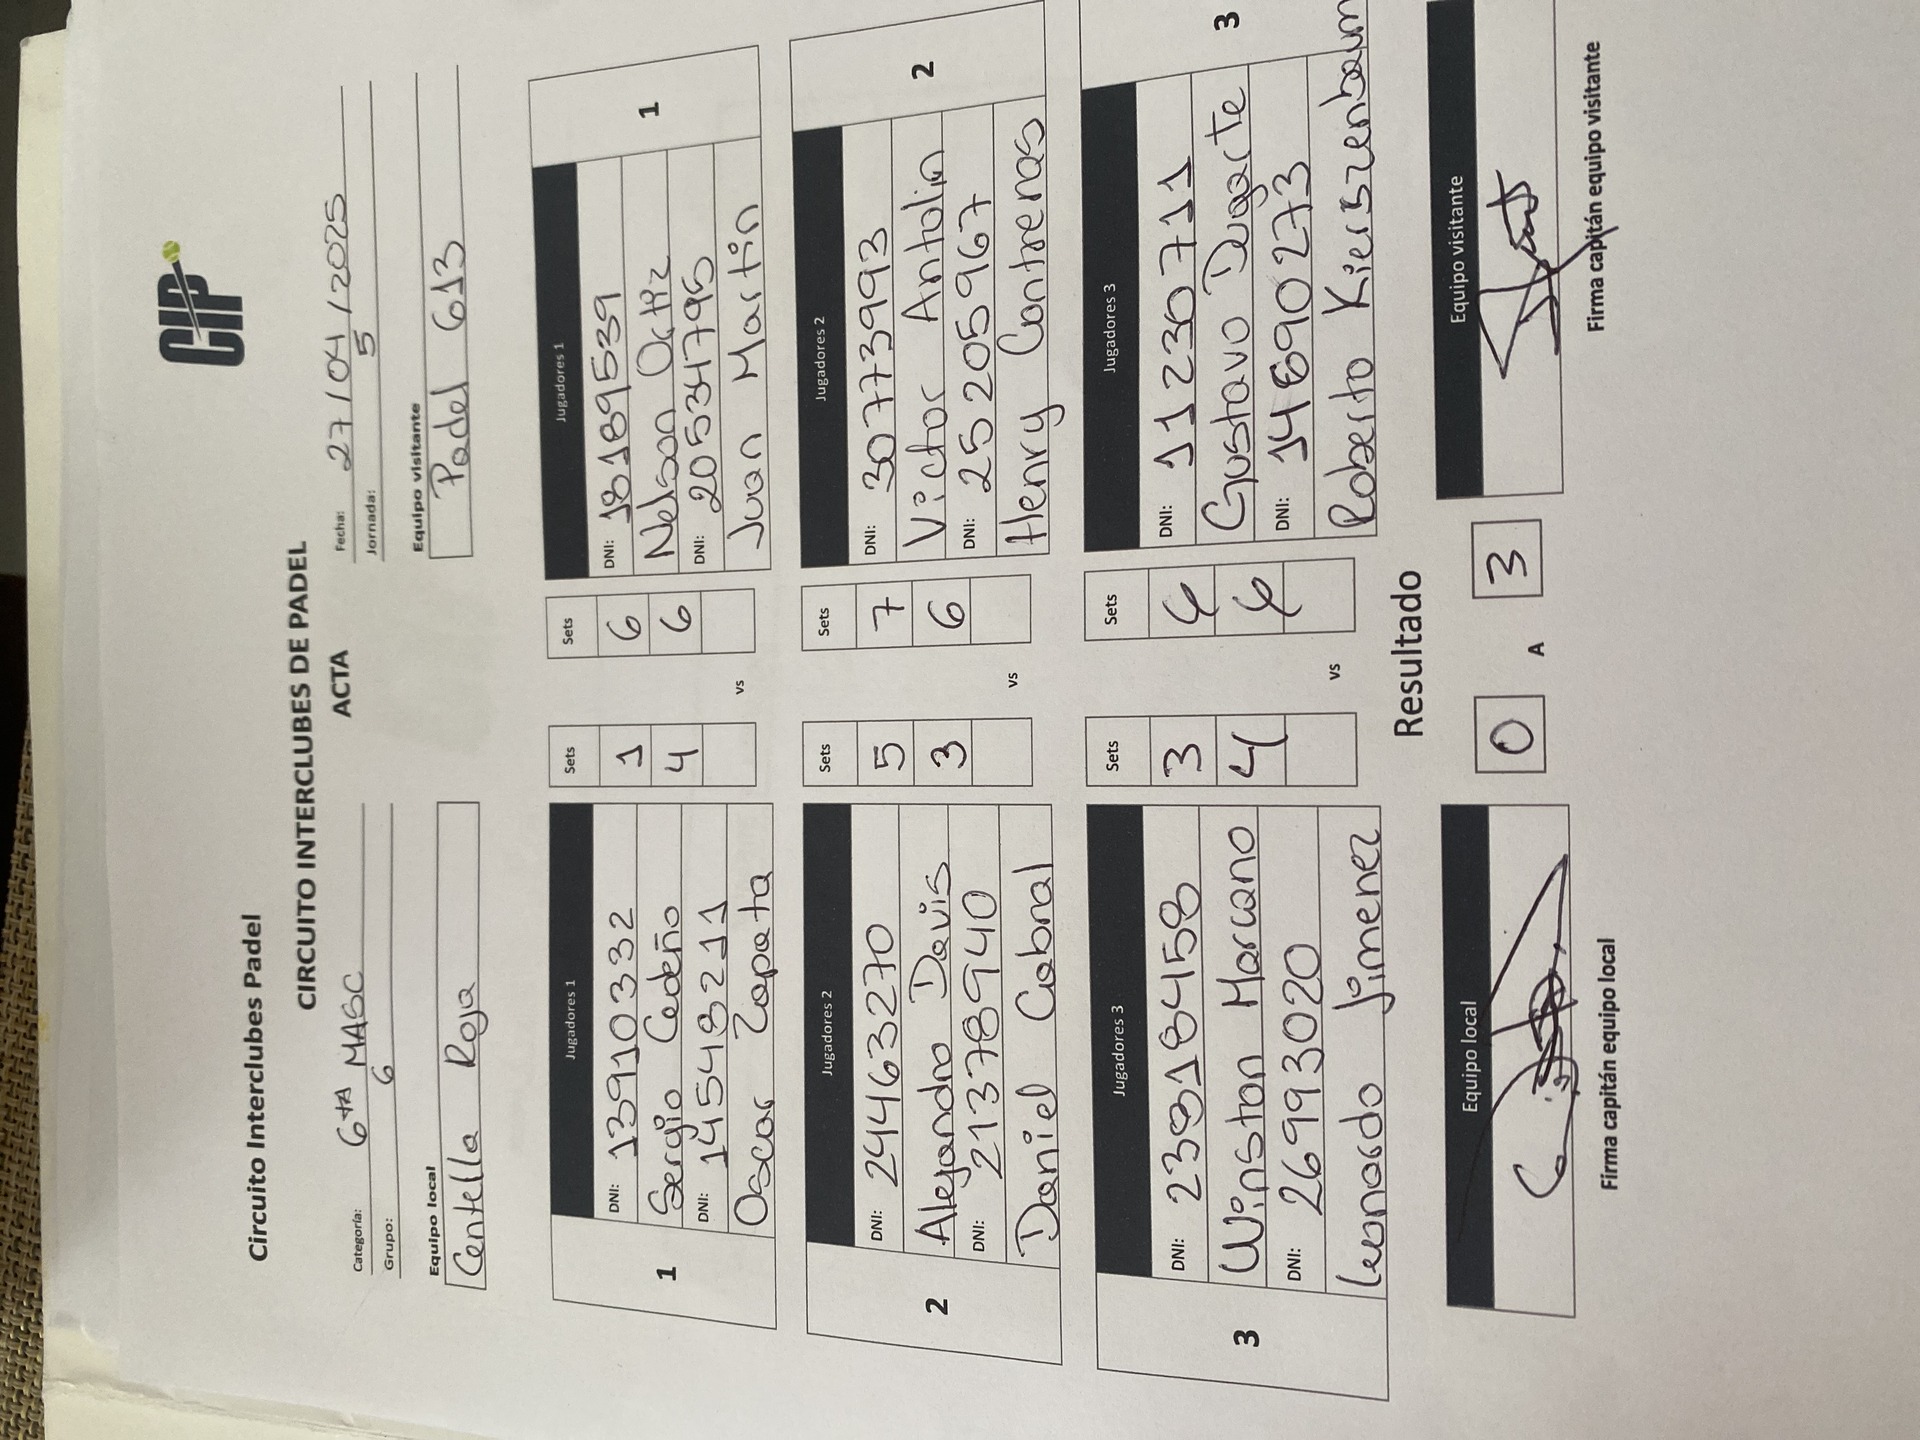 CIP
Circuito Interclubes Padel
CIRCUITO INTERCLUBES DE PADEL
ACTA
Categoría: 6ta MASC
Fecha: 27/04/2025
Grupo: 6
Jornada: 5
Equipo local
Equipo visitante
Centella Roja
Padel 613
Jugadores 1 Sets Sets Jugadores 1
DNI: 13910332 1 6 DNI: 18189539
Sergio Cedeño 4 6 Nelson Ortiz
DNI: 14548211 DNI: 20534795
Oscar Zapata Juan Martin
1 vs 1
Jugadores 2 Sets Sets Jugadores 2
DNI: 24463270 5 7 DNI: 30773993
Alejandro Davis 3 6 Victor Antolin
DNI: 21378940 DNI: 25205967
Daniel Cabral Henry Contreras
2 vs 2
Jugadores 3 Sets Sets Jugadores 3
DNI: 3 6 DNI: 11230711
Winston Marcano 4 6 Gustavo Dugarte
DNI: 26993020 DNI:
Leonardo Jimenez Roberto Kierszenbaum
3 vs 3
Resultado
Equipo local 0 A 3 Equipo visitante
Firma capitán equipo local
Firma capitán equipo visitante